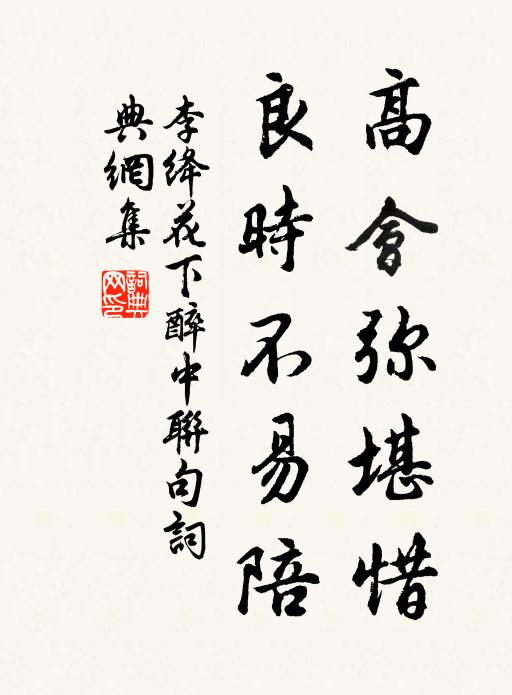 高會弥堪惜
良時不易陪
李绛花下醉中聯句詞
典網集
詞典
网印